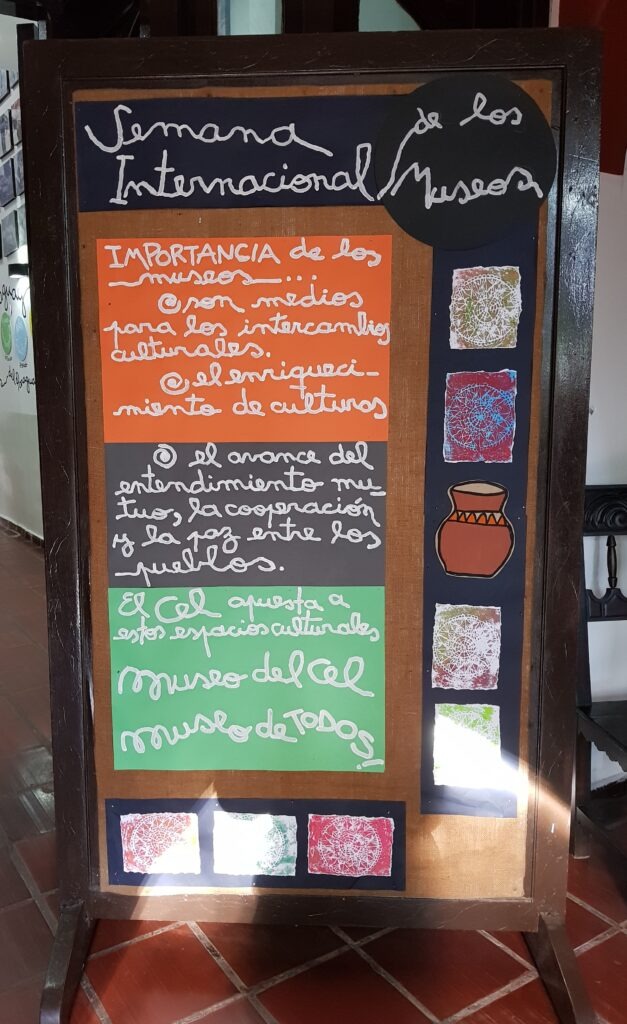 Semana
Internacional
de los
Museos
IMPORTANCIA de los
museos...
son medios
para los intercambios
culturales.
el enriqueci-
miento de culturas
el avance del
entendimiento mu-
tuo, la cooperación
y la paz entre los
pueblos.
El Cel apuesta a
estos espacios culturales
Museo del Cel
Museo de TODOS!